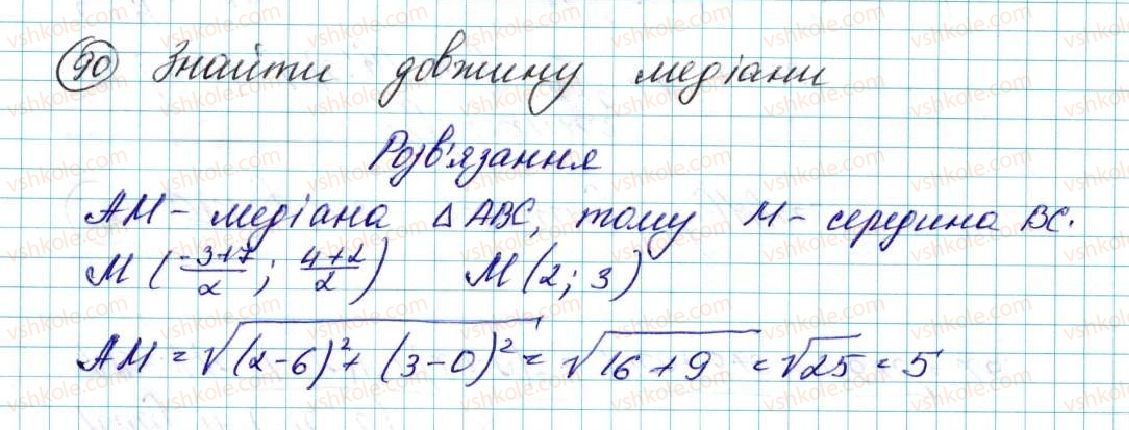 90 Знайти довжину медіани
Розв'язання
AM - медіана △ABC, тому M - середина BC.
M (-3+7/2 ; 4+2/2) M(2; 3)
AM = √(2-6)² + (3-0)² = √16+9 = √25 = 5